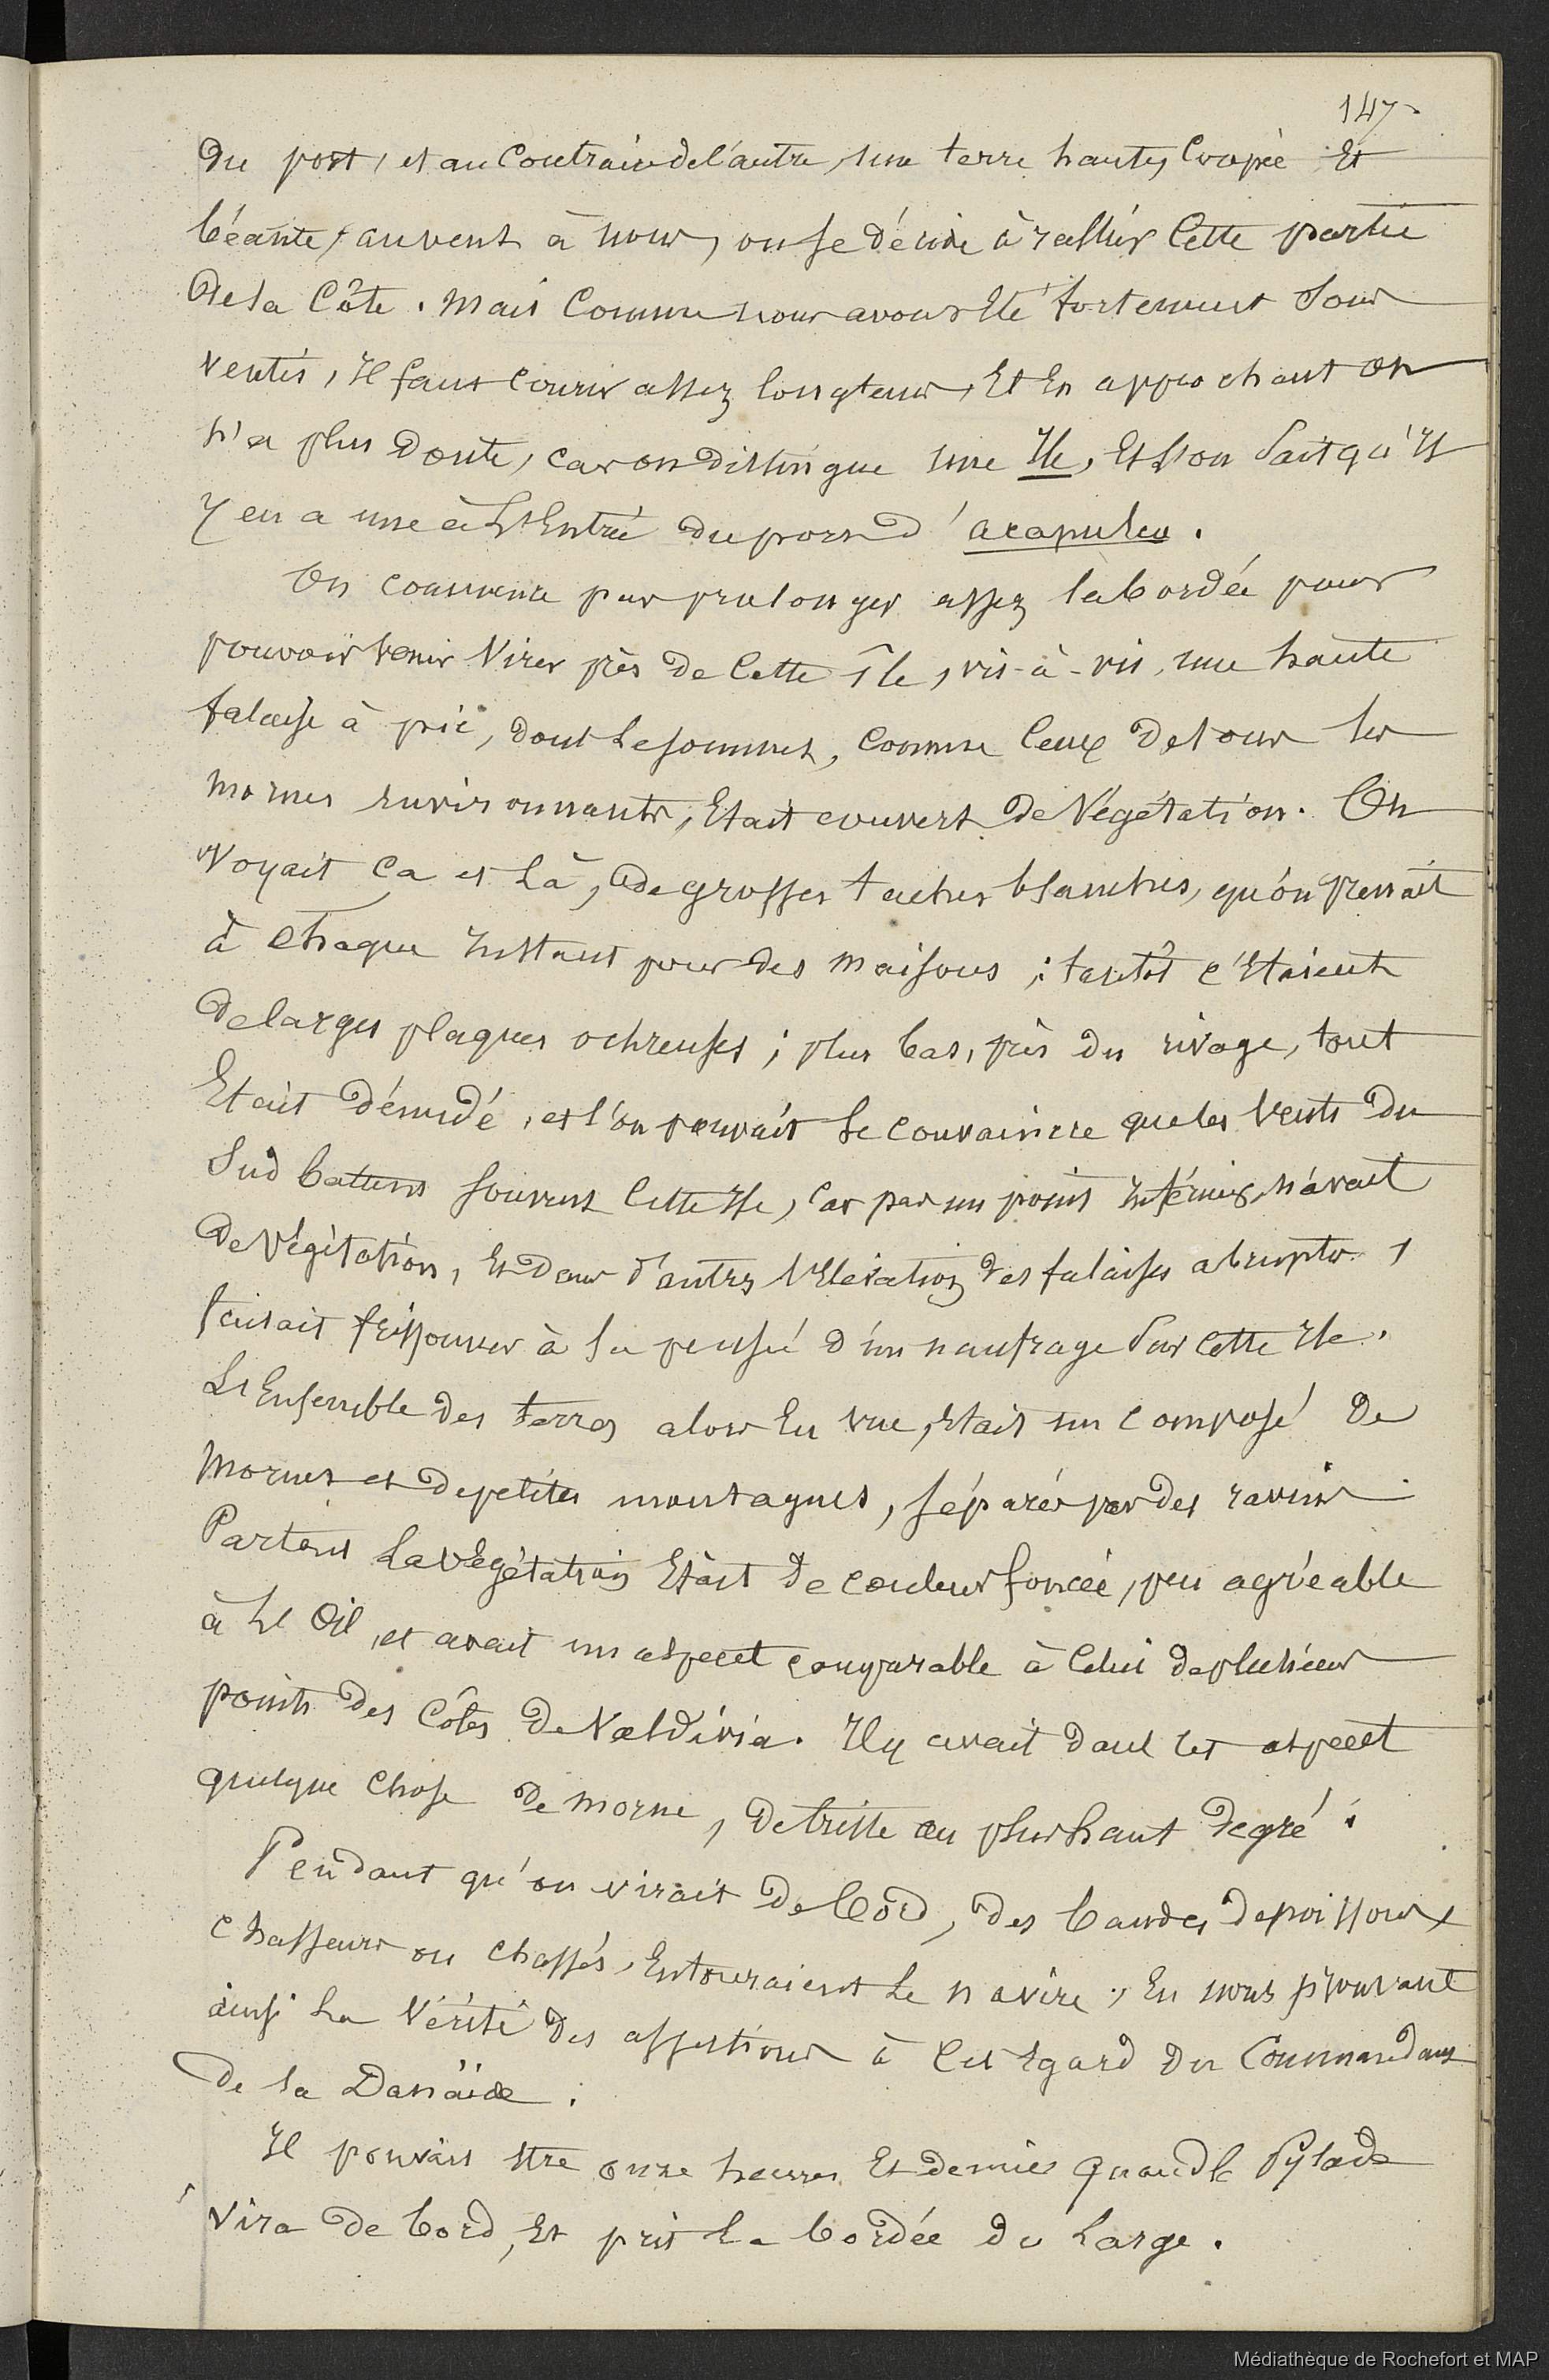 147.
Du port, et au contraire de l'autre, une terre haute, coupée Et
béante, au vent à nous, on se décide à rallier Cette partie
De la Côte. Mais Comme nous avons Eté fortement Sous
ventés, Il faut Courir assez longtems, Et En approchant On
n'a plus Doute, car on distingue une Ile, Et l'on Sait qu'Il
Y en a une à L'Entrée du port D'acapulco.
On commence par prolonger assez la bordée pour
pouvoir venir Virer près de Cette île, vis-à-vis, une haute
falaise à pic, dont Le sommet, Comme Ceux De tous les
mornes environnants, Etait couvert de Végétation. On
Voyait Ca et Là, de grosses taches blanches, qu'on prenait
à Chaque Instant pour des Maisons ; tantôt c'Etaient
De larges plaques ochreuses ; plus bas, près du rivage, tout
Etait Dénudé, et l'on pouvait Se Convaincre que les Vents du
Sud battent Souvent Cette Ile, Car pas un point Inférieur n'avait
De Végétation, Et Dans d'autres L'Elévation des falaises abruptes,
faisait frissonner à la pensée d'un naufrage Sur Cette Ile.
L'Ensemble des terres alors En vue, Etait un Composé De
Mornes et De petites montagnes, Séparés par des ravins.
Partout La Végétation Etait De Couleur foncée, peu agréable
à L'Oeil, et avait un aspect comparable à Celui de plusieurs
points des Côtes De Valdivia. Il y avait dans Cet aspect
quelque Chose De Morne, De triste au plus haut degré.
Pendant qu'on virait De Bord, des bandes De poissons
Chasseurs ou Chassés, Entouraient Le navire, En nous prouvant
ainsi La Vérité des assertions à Cet Egard du Commandant
De la Danaïde.
Il pouvait Etre onze heures Et demie Quand le Pylade
Vira De bord, Et prit La bordée du Large.
Médiathèque de Rochefort et MAP